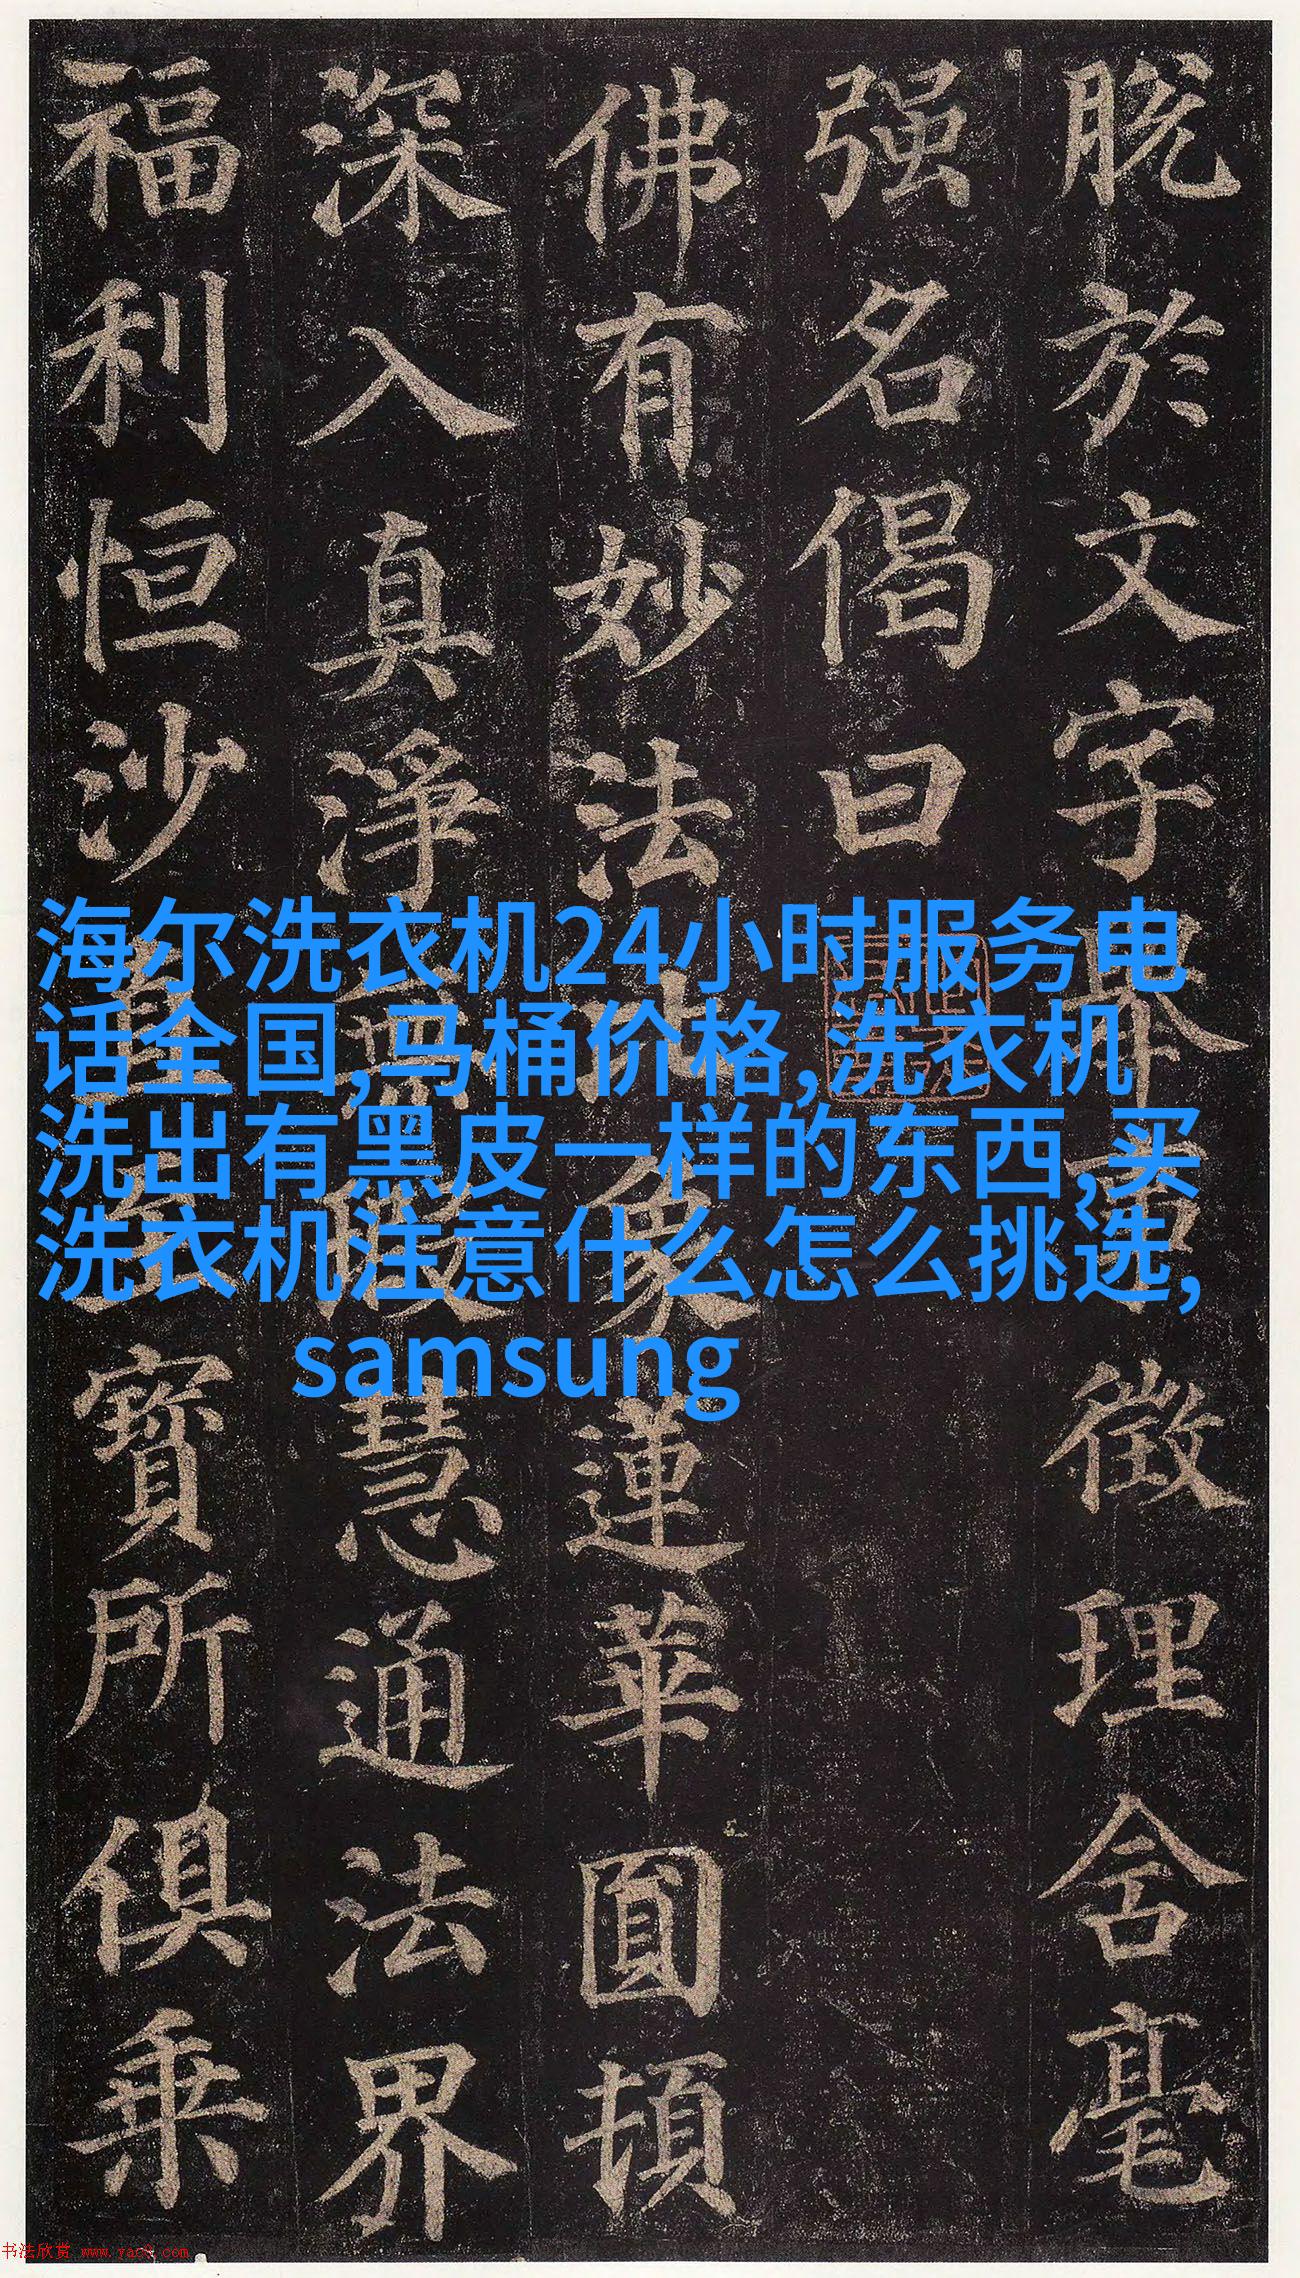 脱於文字徵理含毫
强名偈曰
佛有妙法比象蓮華圓頓
深入真淨無瑕慧通法界
福利恒沙直至寶所俱乘
海尔洗衣机24小时服务电
话全国,马桶价格,洗衣机
洗出有黑皮一样的东西,买
洗衣机注意什么怎么挑选,
samsung
书法欣赏 www.yac8.com